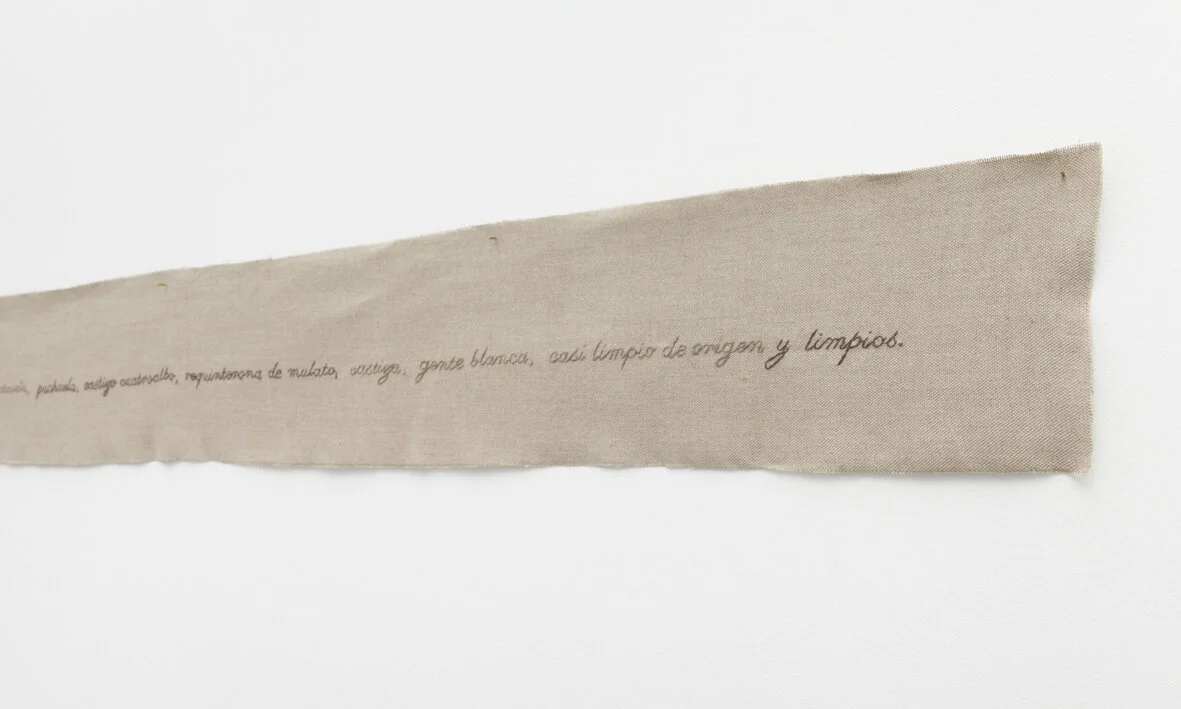 puchuela, castizo cuatroalbo, requinterona de mulato, castiza, gente blanca, casi limpio de origen y limpios.